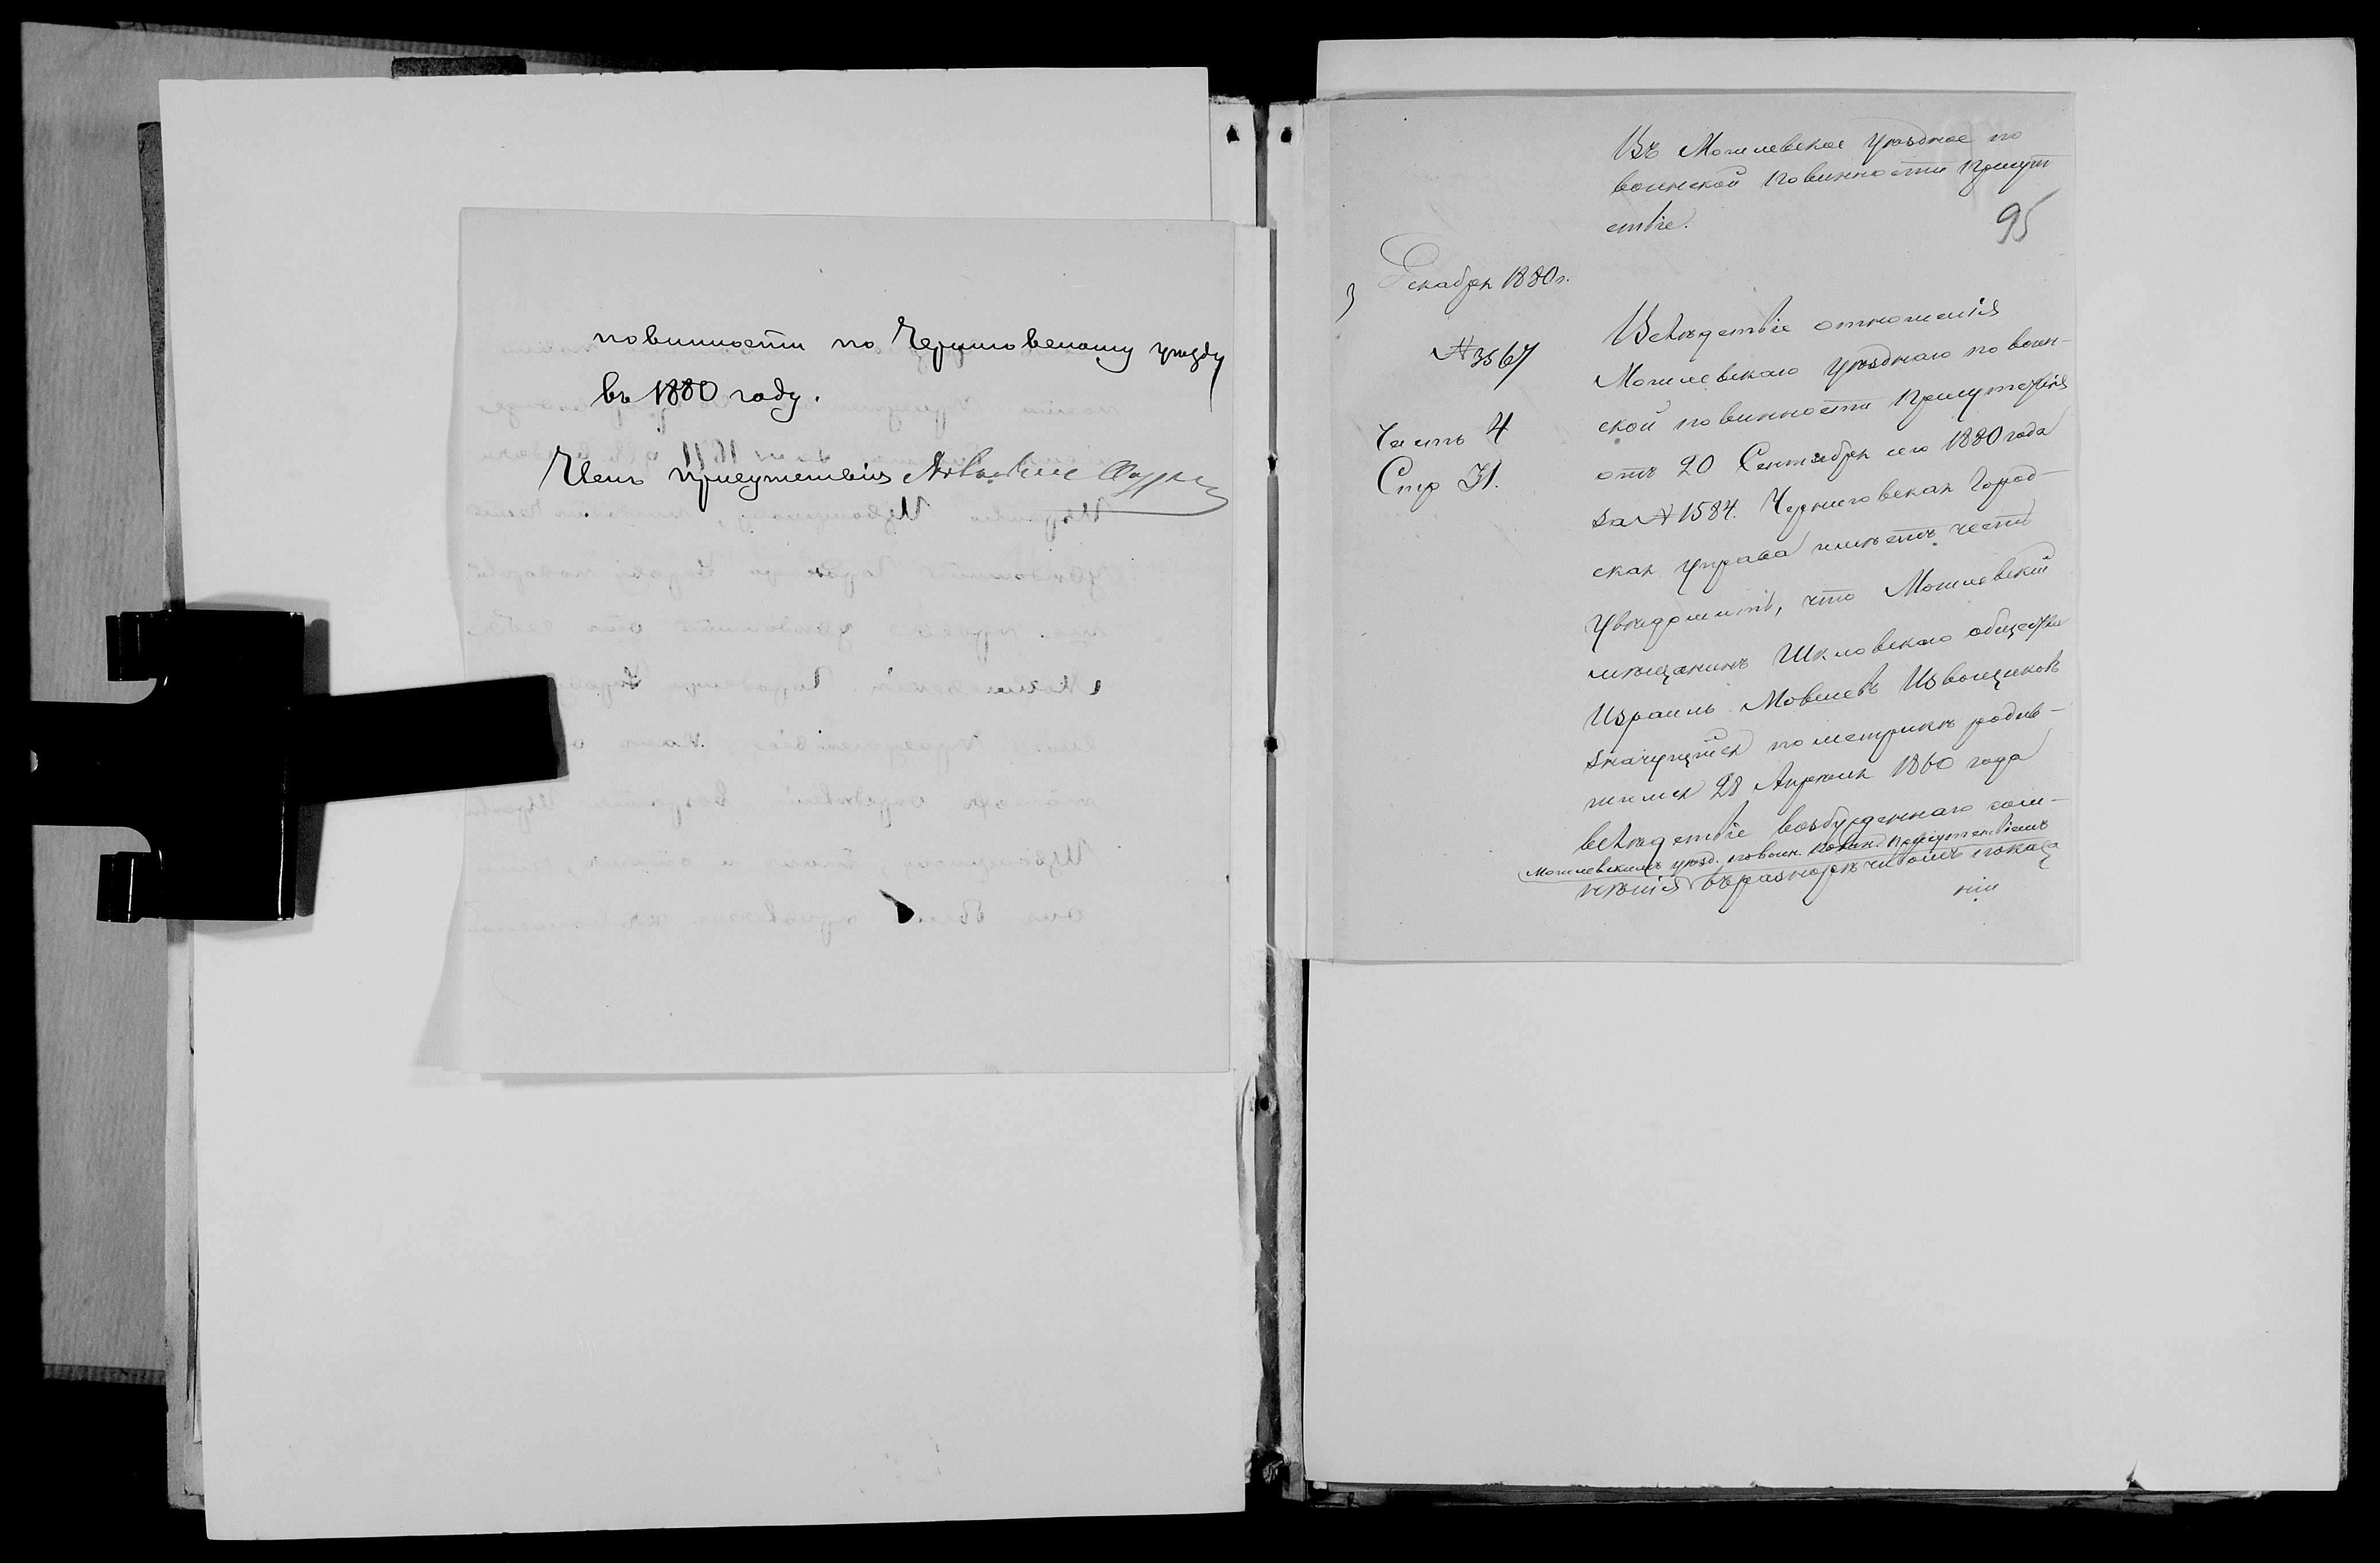 повинности по Черниговскому уезду
въ 1880 году.
Членъ присутствія
Въ Могилевское Уѣздное по
воинской повинности Присут
ствіе.
95
3 Декабря 1880 г.
№ 3567
Часть 4
Стр 31.
Вслѣдствіе отношенія
Могилевскаго Уѣзднаго по воин-
ской повинности Присутствія
отъ 20 Сентября сего 1880 года
за № 1584. Черниговская Город-
ская Управа имѣетъ честь
увѣдомить, что Могилевскій
мѣщанинъ Шкловскаго общества
Израиль Мовшевъ Извощиковъ
значущійся по метрикѣ родив-
шимся 28 Апрѣля 1860 года
вслѣдствіе возбужденнаго сом-
Могилевскимъ уѣзд. по воин. повин. Присутствіемъ
нѣнія въ разнорѣчивомъ показа
ніи